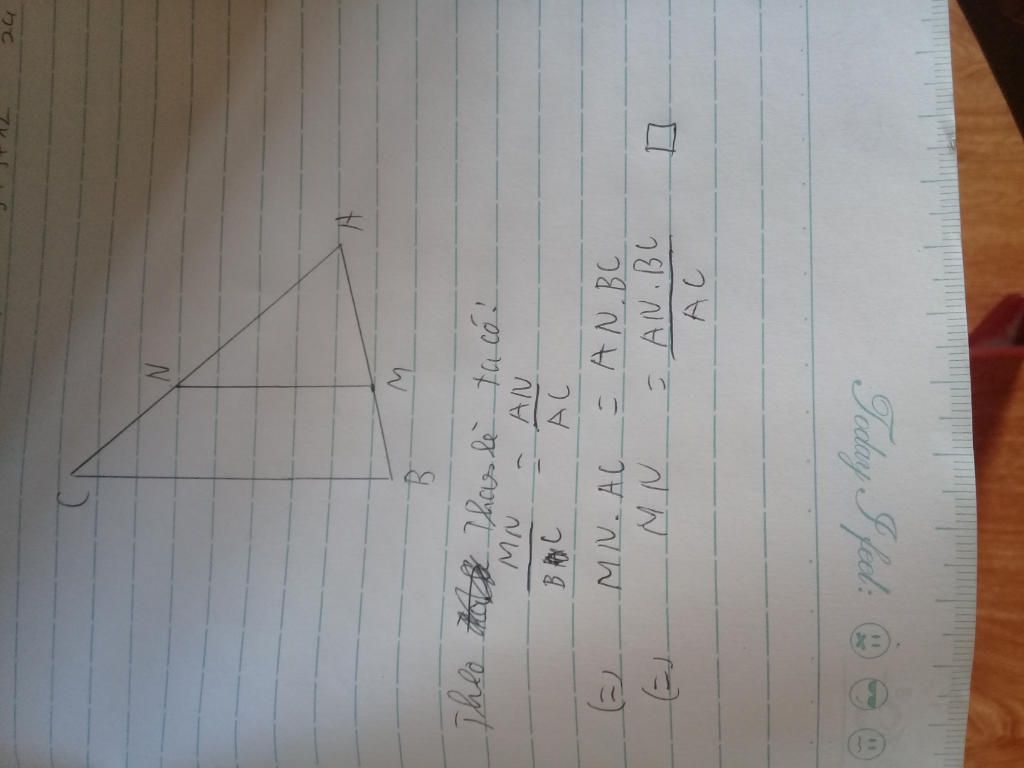 A
N
M
C
B
Theo Thales ta có:
MN/BC = AN/AC
(=) MN.AC = AN.BC
(=) MN = AN.BC/AC □
Today I feel: